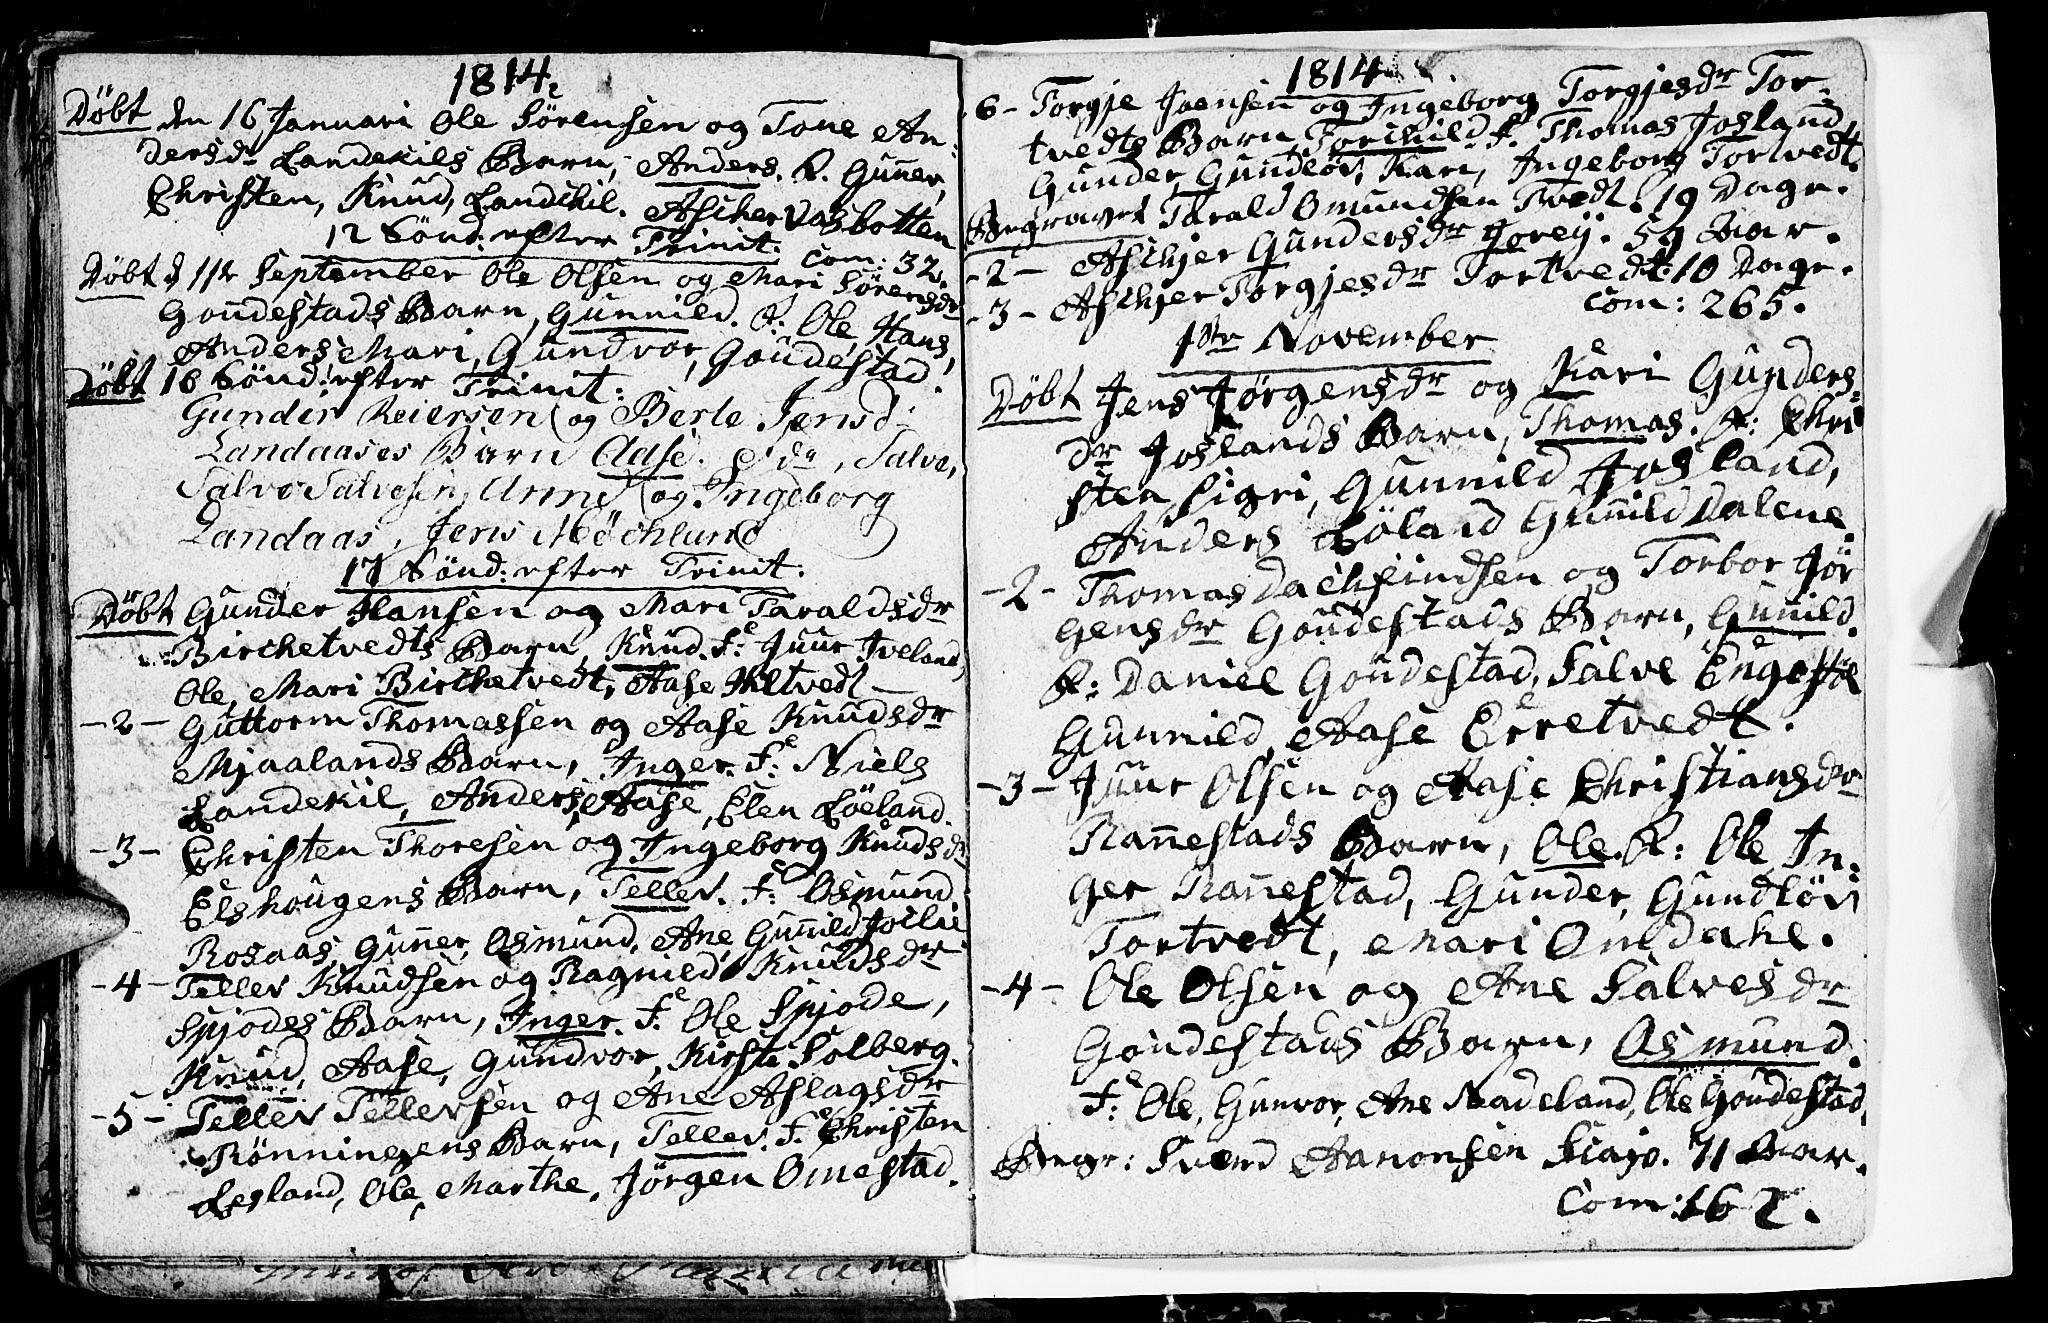 1814
Döbt den 16 Januari Ole Sörensen og Tone An-
dersdr Landekils Barn, Anders. F. Guner,
Christen, Knud, Landekil. Ascher Dasbotten
12 Sönd: efter Trinit. Com: 32.
Döbt d 11te September Ole Olsen og Mari Sörensdr
Goudestads Barn, Gunnild. F: Ole, Hans,
Anders Mari, Gundvor, Goudestad.
Döbt 16 Sönd: efter Trinit:
Gunder Reiersen og Berte Jensd:
Landaases Barn Aase. Salve,
Salve Salvesen, Anne og Ingeborg
Landaas, Jens Möchlund
17 Sönd: efter Trinit:
Döbt Gunder Hansen og Mari Taraldsdr
Birchetvedts Barn, Knud. F: Juur Iveland,
Ole, Mari Birchetvedt, Aase Hiltvedt
-2- Guttorm Thomassen og Aase Knudsdr
Mjaalands Barn, Inger. F: Niels
Landekil, Anders, Aase, Elen Löeland.
-3- Christen Thoresen og Ingeborg Knudsdr
Elshougens Barn, Tellev. F: Osmund
Rosaas, Guner, Osmund, Ane Gunild
-4- Tellev Knudsen og Ragnild Knudsdr
Spjodes Barn, Inger. F: Ole Spjode,
Knud, Aase, Gundvor, Kirste Solberg.
-5- Tellev Tellevsen og Ane Aslagsdr
Rönningens Barn, Tellev. F: Christen
Legland, Ole, Marthe, Jörgen Omestad.
1814
6- Torgje Joensen og Ingeborg Torgjesdr Tor-
tvedts Barn, Torchild. F. Thomas Josland,
Gunder, Gundlöv, Kari, Ingeborg Tortvedt.
Begravet Tarald Omundsen Tvedt. 19 Dage.
-2- Aschjer Gundersdr Jorey. 59 Aar.
-3- Aschjer Torgjesdr Tortvedt. 10 Dage.
Com: 265.
1ste November
Döbt Jens Jörgensdr og Kari Gunders-
dr Joslands Barn, Thomas. F: Chri
sten, Sigri, Gunnild Josland,
Anders Löland Gunild Dalene.
-2- Thomas Dachfindsen og Torbor Jör
gensdr Goudestads Barn, Gunild.
F: Daniel Goudestad, Salve Engestöl
Gunnild, Aase Erretvedt.
-3- Juur Olsen og Aase Christiansdr
Ranestads Barn, Ole. F: Ole In-
ger Ranestad, Gunder, Gundlöv
Tortvedt, Mari Omdahl.
-4- Ole Olsen og Ane Salvesdr
Goudestads Barn, Osmund.
F: Ole, Gunvor, Ane Nadeland, Ole Goudestad,
Begr: Svend Aanonsen Fiajo. 71 Aar.
Com: 162.